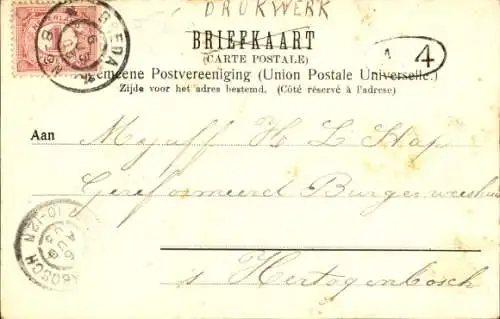 DRUKWERK
BRIEFKAART
(CARTE POSTALE)
Algemeene Postvereeniging (Union Postale Universelle.)
Zijde voor het adres bestemd. (Côté réservé à l'adresse)
4
BREDA
NEDERLAND
Aan Mejuff H L Stap
Gereformeerd Burgerweeshuis
s Hertogenbosch
10-12N
BOSCH